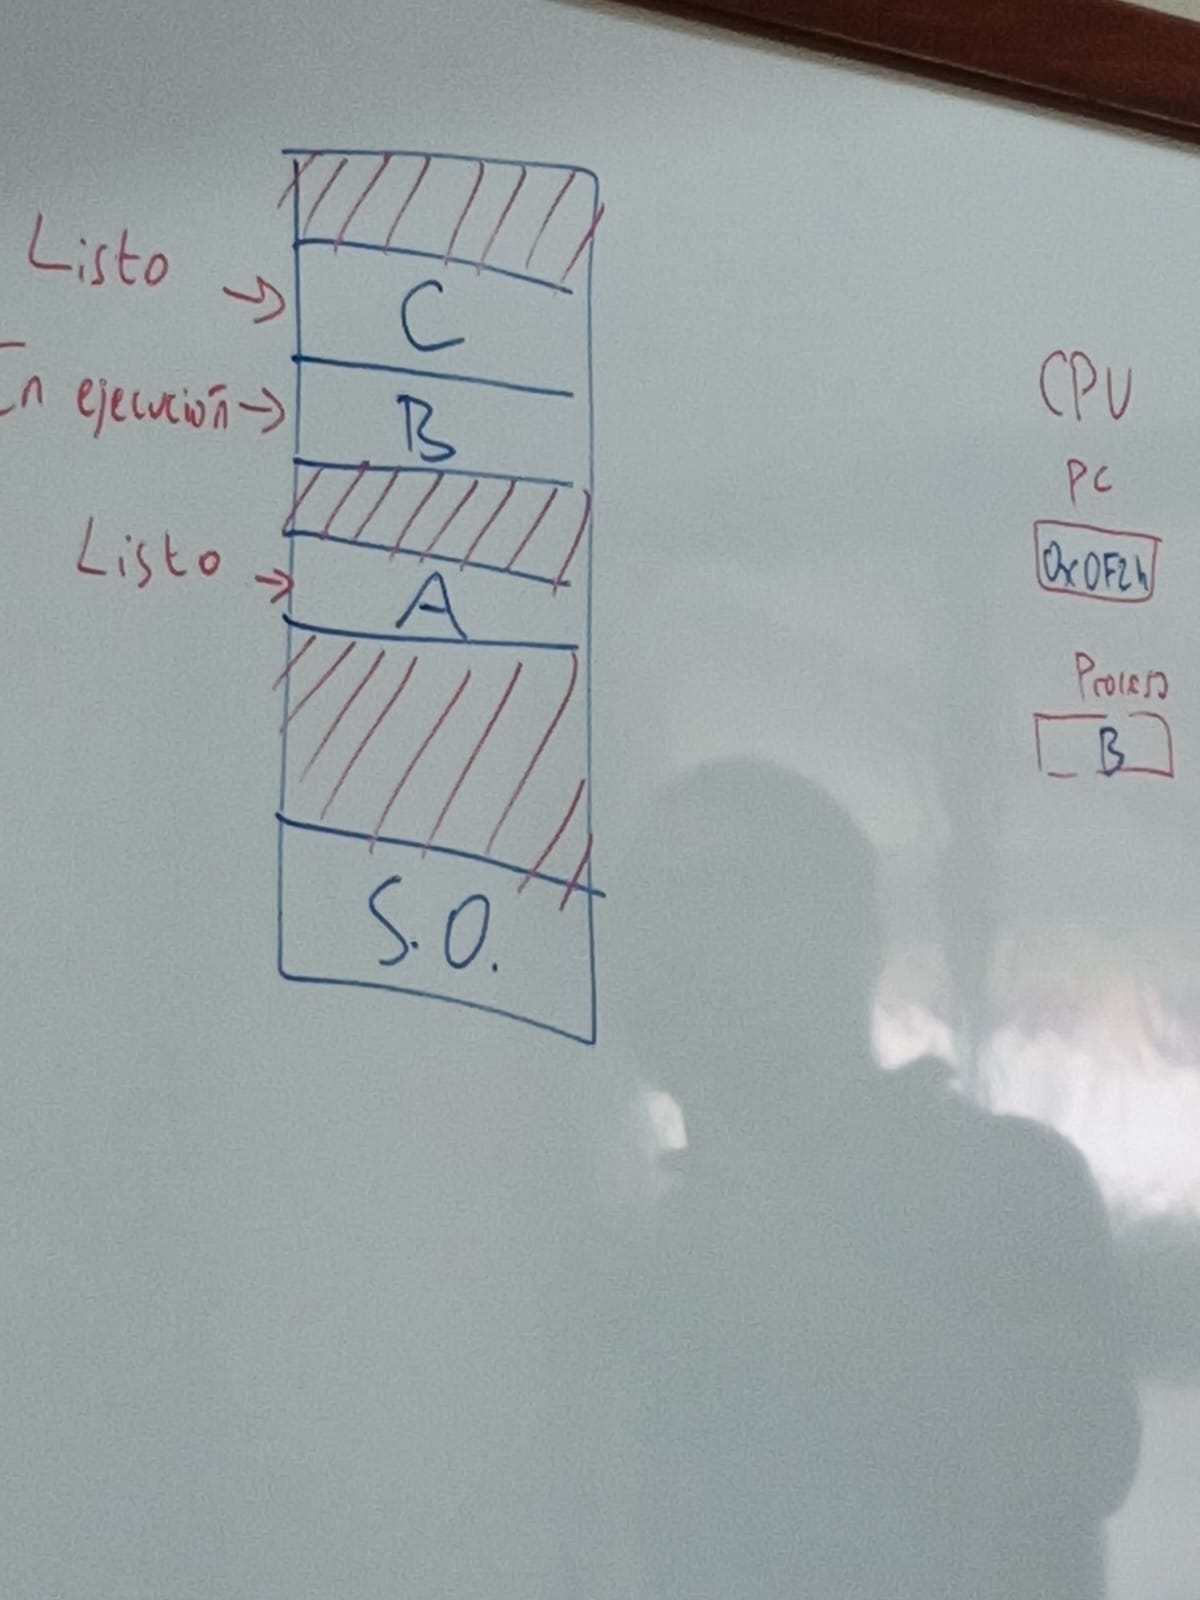 Listo
C
En ejecución
B
Listo
A
S.O.
CPU
PC
0x0F2h
Proceso
B